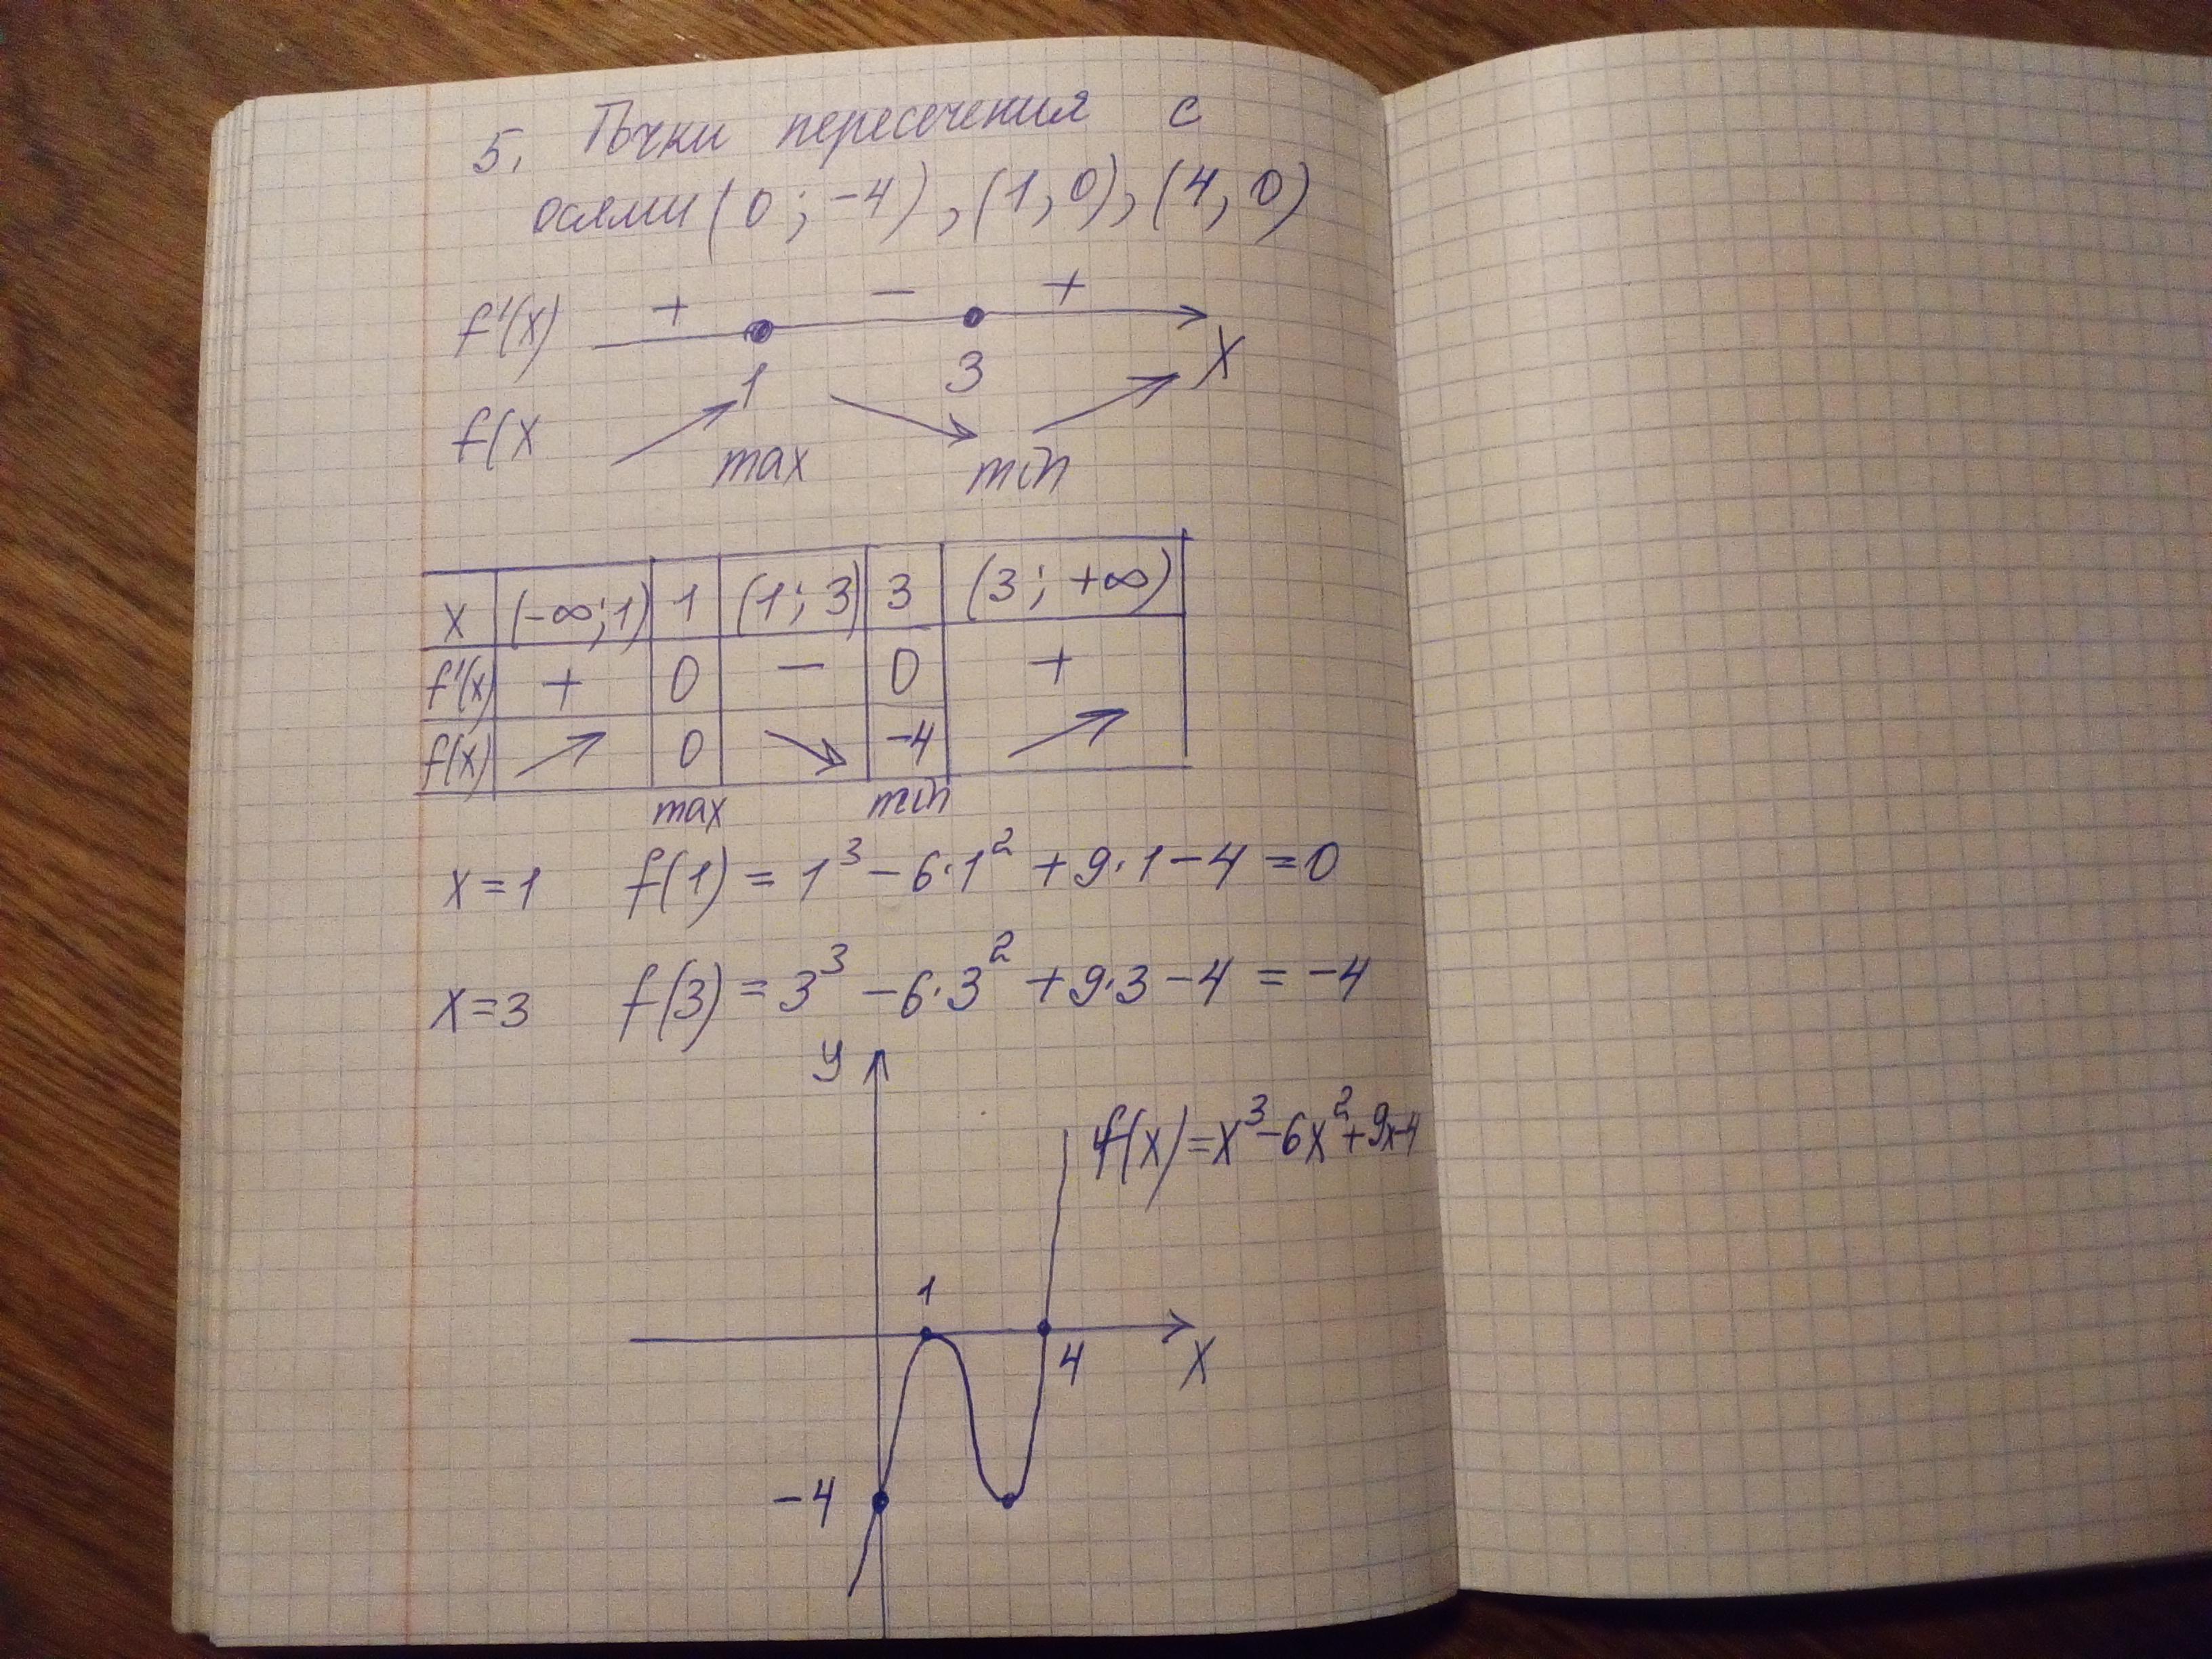 5. Точки пересечения с
осями (0 ; -4), (1, 0), (4, 0)
+ − +
f'(x)
1 3 X
f(x
max min
x (-∞;1) 1 (1; 3) 3 (3; +∞)
f'(x) + 0 − 0 +
f(x) 0 -4
max min
x=1 f(1) = 1³ - 6·1² + 9·1 - 4 = 0
x=3 f(3) = 3³ - 6·3² + 9·3 - 4 = -4
y
f(x) = x³-6x²+9x-4
1
4 X
-4